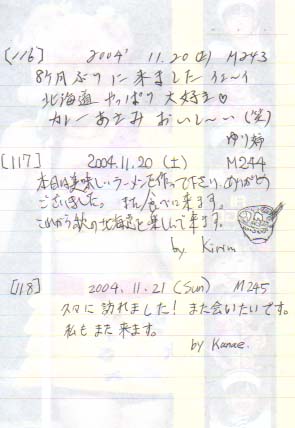 [116] 2004' 11.20 (土) M243
8ヶ月ぶりに来ました イェーイ
北海道 やっぱり 大好き♡
おいし〜い (笑)
[117] 2004.11.20 (土) M244
本日は美味しいラーメンを作って下さり、ありがとう
ございました。また食べに来ます。
の北海道を楽しんで来ます。
by Kirin
[118] 2004.11.21 (Sun) M245
久々に訪れました! また会いたいです。
私もまた来ます。
by Kanae